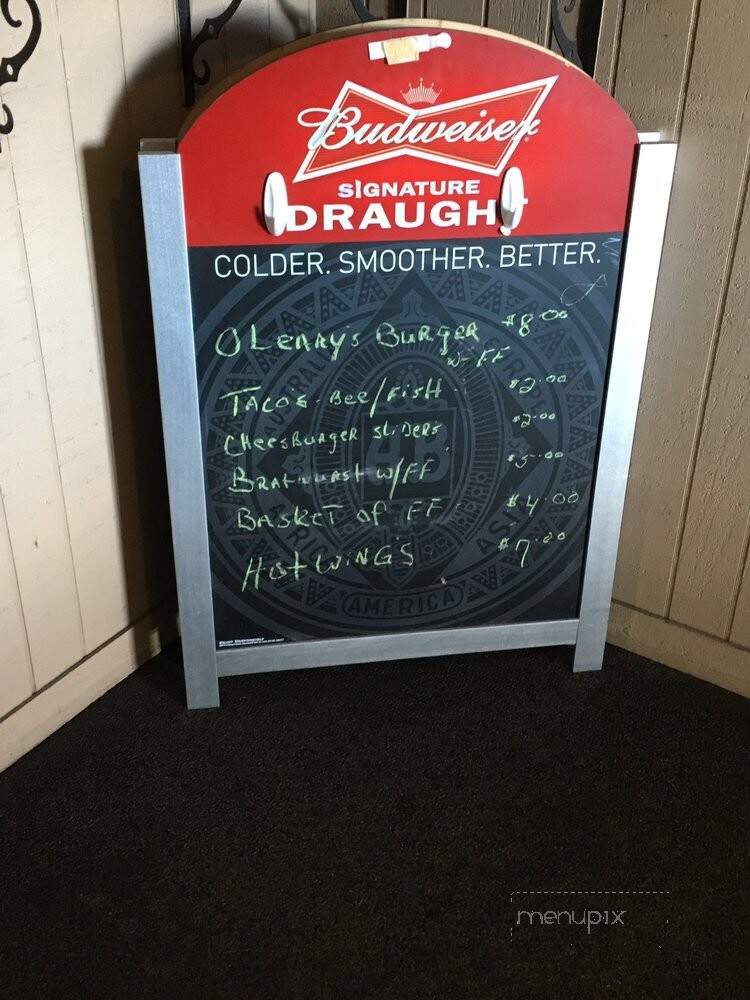 Budweiser
SIGNATURE
DRAUGHT
COLDER. SMOOTHER. BETTER.
O LEARY'S BURGER $8.00
W- FF
TACO'S - BEE/FISH $2.00
CHEESBURGER SLIDERS $2.00
BRATWURST W/FF $5.00
BASKET OF FF $4.00
HOT WINGS $7.00
AB
AMERICA
menupix